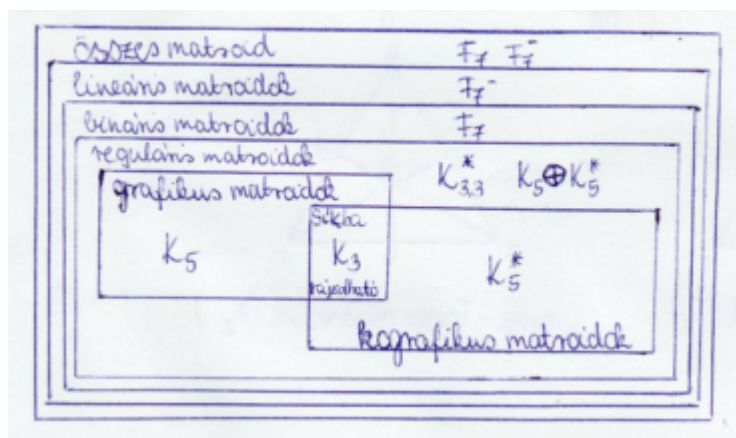 összes matroid F₇ F₇⁻
lineáris matroidok F₇⁻
bináris matroidok F₇
reguláris matroidok
K*₃,₃ K₅⊕K₅*
grafikus matroidok
Síkba
K₅ K₃ K₅*
rajzolható
kografikus matroidok